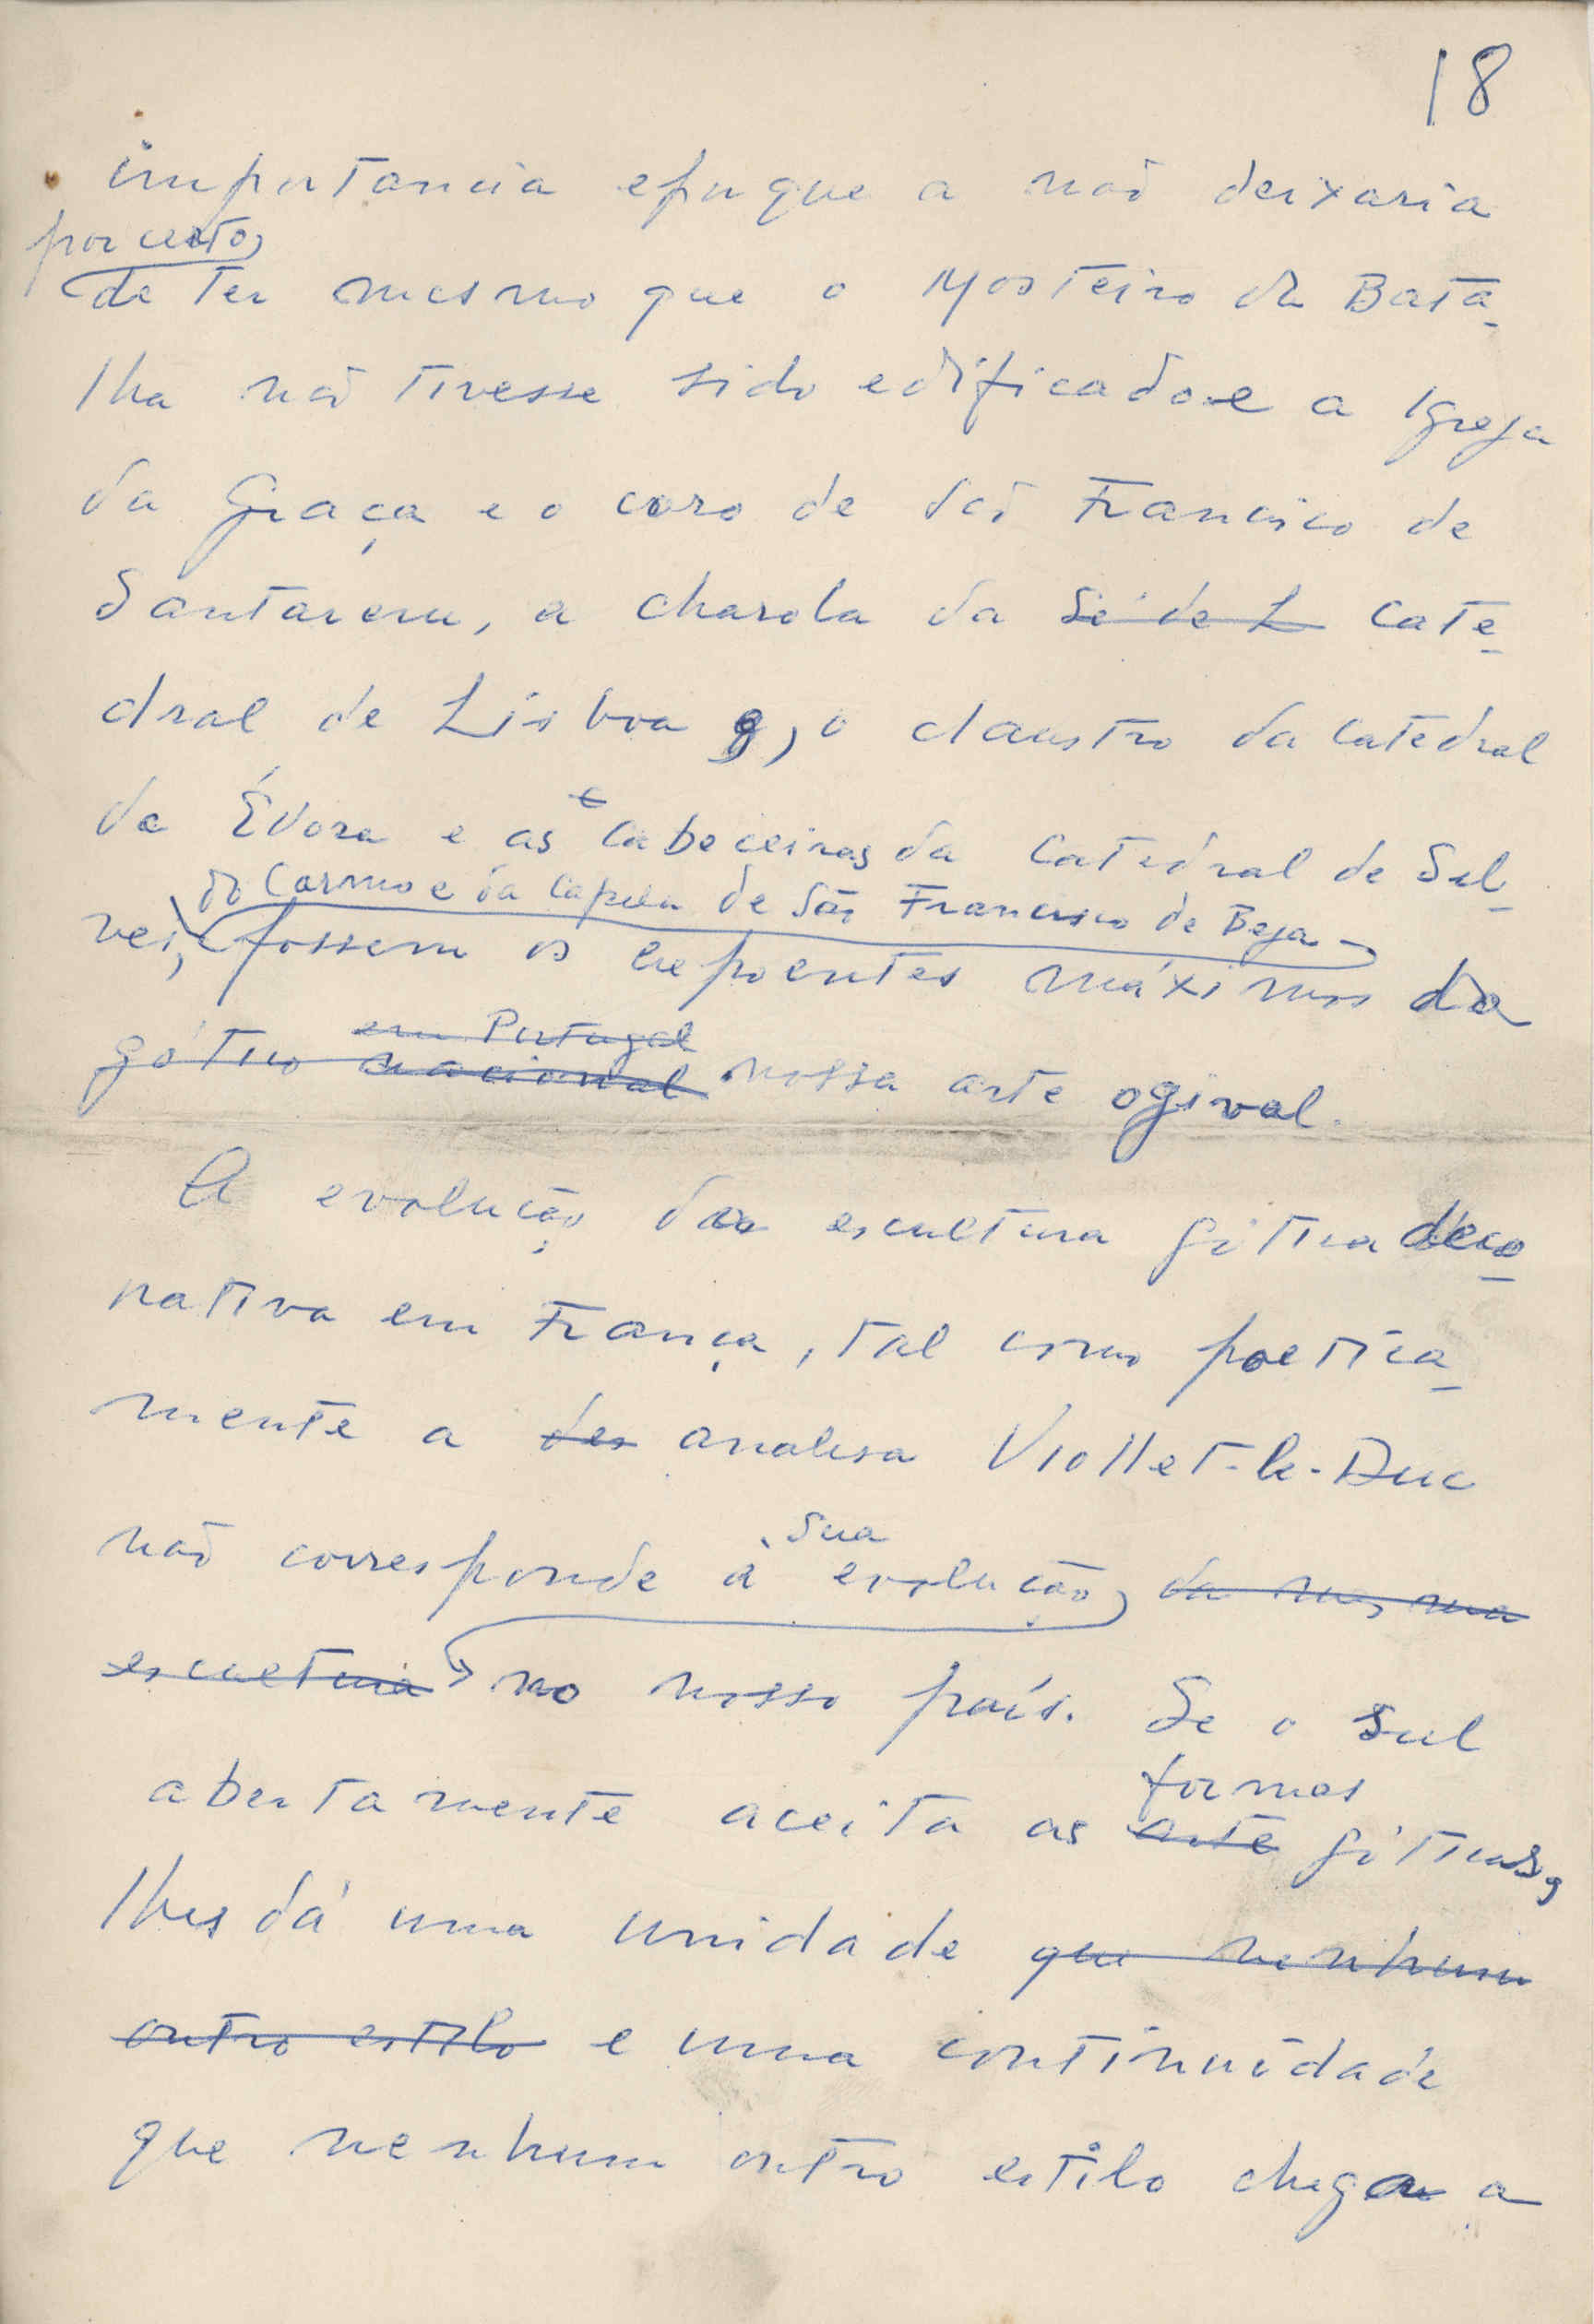 18
importancia e porque a não deixaria
por certo,
de ter mesmo que o Mosteiro da Bata-
lha não tivesse sido edificado e a Igreja
da Graça e o coro de São Francisco de
Santarem, a charola da Sé de L Cate-
dral de Lisboa, o claustro da Catedral
de Évora e as cabeceiras da Catedral de Sil-
do Carmo e da Capela de São Francisco de Beja
ves, fossem os expoentes máximos da
em Portugal
gótico nacional nossa arte ogival.
A evolução da escultura gótica deco-
rativa em França, tal como poetica-
mente a des analisa Viollet-le-Duc
sua
não corresponde à evolução da mesma
escultura no nosso país. Se o sul
formas
abertamente aceita as arte góticas,
lhes dá uma unidade que nenhum
outro estilo e uma continuidade
que nenhum outro estilo chega a